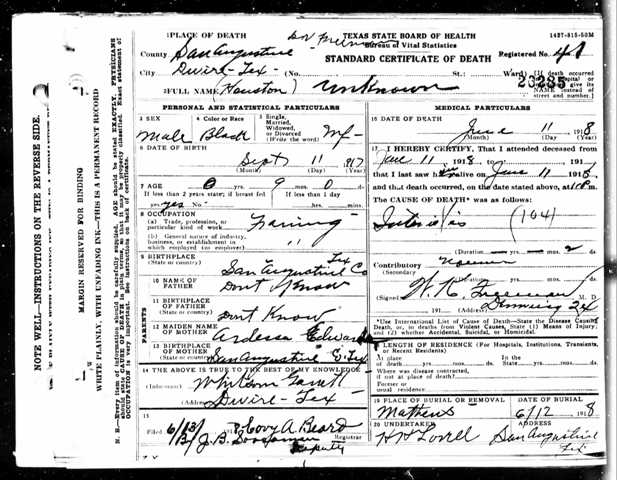 1 PLACE OF DEATH
TEXAS STATE BOARD OF HEALTH
1437-815-50M
Bureau of Vital Statistics
County San Augustine
STANDARD CERTIFICATE OF DEATH
Registered No. 41
City Dwire-Tex (No. St.; Ward)
[If death occurred
NAME instead of
street and number.]
26285
2 FULL NAME Houston) unknown
PERSONAL AND STATISTICAL PARTICULARS
3 SEX
Male
4 Color or Race
Black
5 Single,
Married,
Widowed,
or Divorced
(Write the word)
6 DATE OF BIRTH
Sept 11 1917
(Month) (Day) (Yr)
7 AGE 0 yrs. 9 mos. 0 ds.
If less than 2 years state if breast fed
yes No
If less than 1 day
hrs. mins.
8 OCCUPATION
(a) Trade, profession, or
particular kind of work Farming
(b) General nature of industry,
business, or establishment in
which employed (or employer) "
9 BIRTHPLACE
(State or country) San Augustine Co Tex
10 NAME OF
FATHER Dont Know
11 BIRTHPLACE
OF FATHER
(State or country) Dont Know
12 MAIDEN NAME
OF MOTHER Ardessa Edwards
13 BIRTHPLACE
OF MOTHER
(State or country) San Augustine Co Tex
PARENTS
14 THE ABOVE IS TRUE TO THE BEST OF MY KNOWLEDGE
(Informant)
(Address) Dwire-Tex
15
Filed 6/13/ 1918 Covy A. Beard
Registrar
J. B.
Deputy
MEDICAL PARTICULARS
16 DATE OF DEATH
June 11 1918
(Month) (Day) (Yr)
17 I HEREBY CERTIFY, That I attended deceased from
June 11 1918, to 191
that I last saw h alive on June 11 1918
and that death occurred, on the date stated above, at m.
The CAUSE OF DEATH* was as follows:
(104)
(Duration yrs. mos. 2 ds.
Contributory
(Secondary)
(Signed) W. H. Freeman M. D.
191 (Address) Tex
*Use International List of Causes of Death—State the Disease Causing Death, or, in deaths from Violent Causes, State (1) Means of Injury; and (2) whether Accidental, Suicidal, or Homicidal.
18 LENGTH OF RESIDENCE (For Hospitals, Institutions, Transients, or Recent Residents)
At place
of death yrs. mos. ds.
In the
State yrs. mos. ds.
Where was disease contracted,
if not at place of death?
Former or
usual residence
19 PLACE OF BURIAL OR REMOVAL
Mathews
DATE OF BURIAL
6/12 1918
20 UNDERTAKER
Lovell
ADDRESS
San Augustine
Tex
NOTE WELL—INSTRUCTIONS ON THE REVERSE SIDE.
MARGIN RESERVED FOR BINDING
WRITE PLAINLY, WITH UNFADING INK—THIS IS A PERMANENT RECORD
N. B.—Every item of information should be carefully supplied. AGE should be stated EXACTLY. PHYSICIANS
should state CAUSE OF DEATH in plain terms, so that it may be properly classified. Exact statement of
OCCUPATION is very important. See instructions on back of certificate.